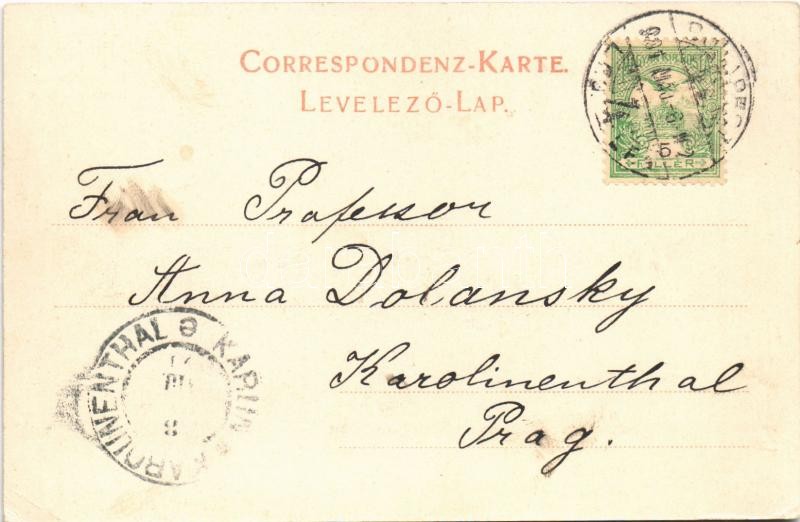 CORRESPONDENZ-KARTE.
LEVELEZŐ-LAP.
5
FILLÉR
Frau Professor
Anna Dolansky
Karolinenthal
Prag.
KAROLINENTHAL
KARLIN
8